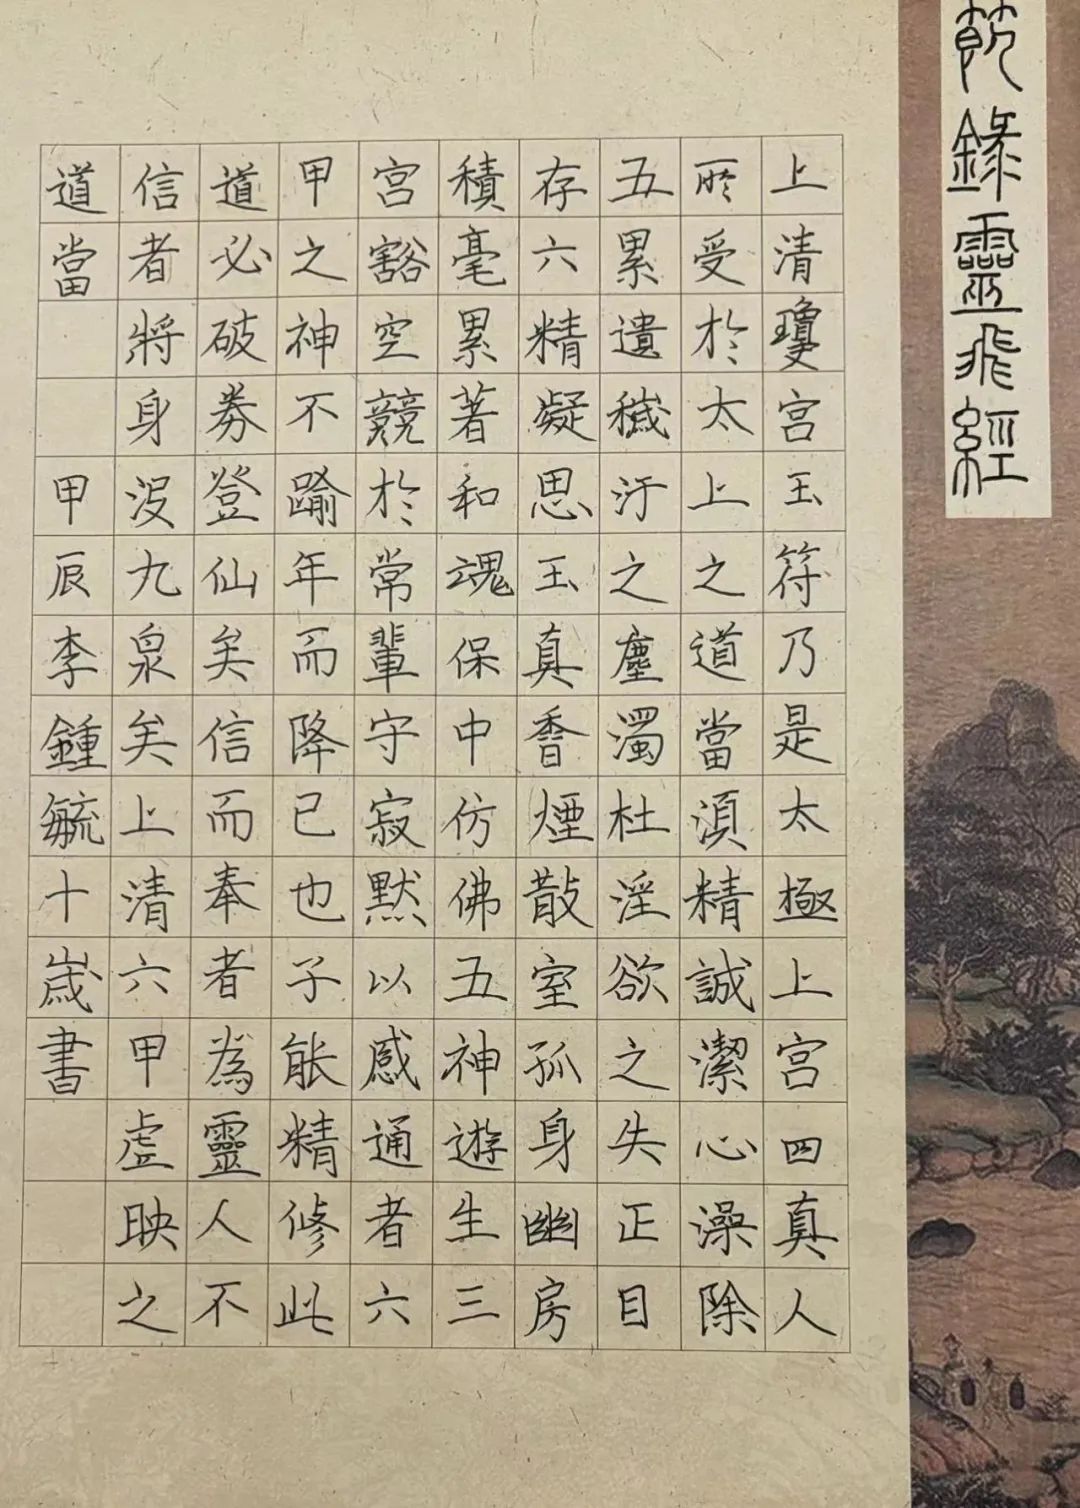 節錄靈飛經
上清瓊宮玉符乃是太極上宮四真人
所受於太上之道當須精誠潔心澡除
五累遺穢汙之塵濁杜淫欲之失正目
存六精凝思玉真香煙散室孤身幽房
積毫累著和魂保中仿佛五神遊生三
宮豁空競於常輩守寂默以感通者六
甲之神不踰年而降已也子能精修此
道必破券登仙矣信而奉者為靈人不
信者將身沒九泉矣上清六甲虛映之
道當
甲辰李鍾毓十歲書